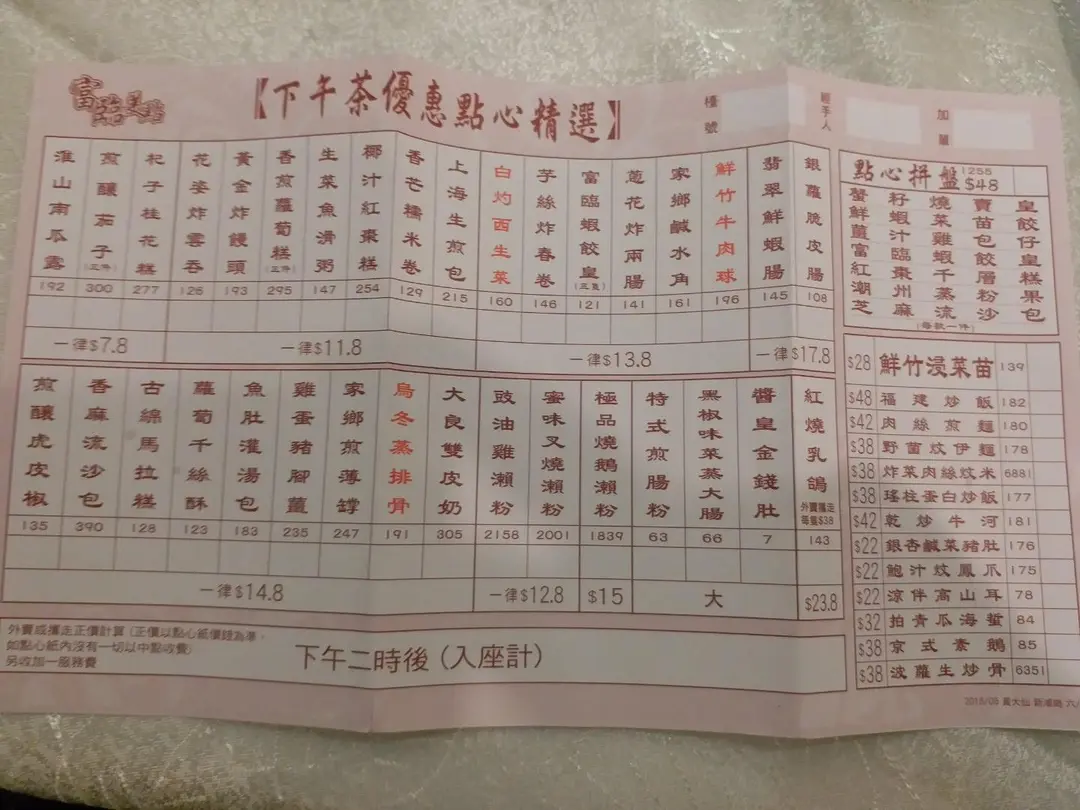 富臨美點
【下午茶優惠點心精選】
檯號
經手人
加單
淮山南瓜露 192
煎釀茄子(三件) 300
杞子桂花糕 277
花姿炸雲吞 126
黃金炸饅頭 193
香煎蘿蔔糕(三件) 295
生菜魚滑粥 147
椰汁紅棗糕 254
香芒糯米卷 129
上海生煎包 215
白灼西生菜 160
芋絲炸春卷 146
富臨蝦餃皇(三隻) 121
蔥花炸兩腸 141
家鄉鹹水角 161
鮮竹牛肉球 196
翡翠鮮蝦腸 145
銀蘿脆皮腸 108
一律$7.8
一律$11.8
一律$13.8
一律$17.8
煎釀虎皮椒 135
香麻流沙包 390
古綿馬拉糕 128
蘿蔔千絲酥 123
魚肚灌湯包 183
雞蛋豬腳薑 235
家鄉煎薄罉 247
烏冬蒸排骨 191
大良雙皮奶 305
豉油雞瀨粉 2158
蜜味叉燒瀨粉 2001
極品燒鵝瀨粉 1839
特式煎腸粉 63
黑椒味菜蒸大腸 66
醬皇金錢肚 7
紅燒乳鴿 外賣攜走每隻$38 143
一律$14.8
一律$12.8
$15
大
$23.8
外賣或攜走正價計算(正價以點心紙價錢為準，
如點心紙內沒有一切以中點收費)
另收加一服務費
下午二時後(入座計)
點心拼盤 1255 $48
蟹籽燒賣皇
鮮蝦菜苗餃
薑汁雞包仔
富臨蝦餃皇
紅棗千層糕
潮州蒸粉果
芝麻流沙包
(每款一件)
$28 鮮竹浸菜苗 139
$48 福建炒飯 182
$42 肉絲煎麵 180
$38 野菌炆伊麵 178
$38 炸菜肉絲炆米 6881
$38 瑤柱蛋白炒飯 177
$42 乾炒牛河 181
$22 銀杏鹹菜豬肚 176
$22 鮑汁炆鳳爪 175
$22 涼伴高山耳 78
$32 拍青瓜海蜇 84
$38 京式素鵝 85
$38 波蘿生炒骨 6351
黃大仙